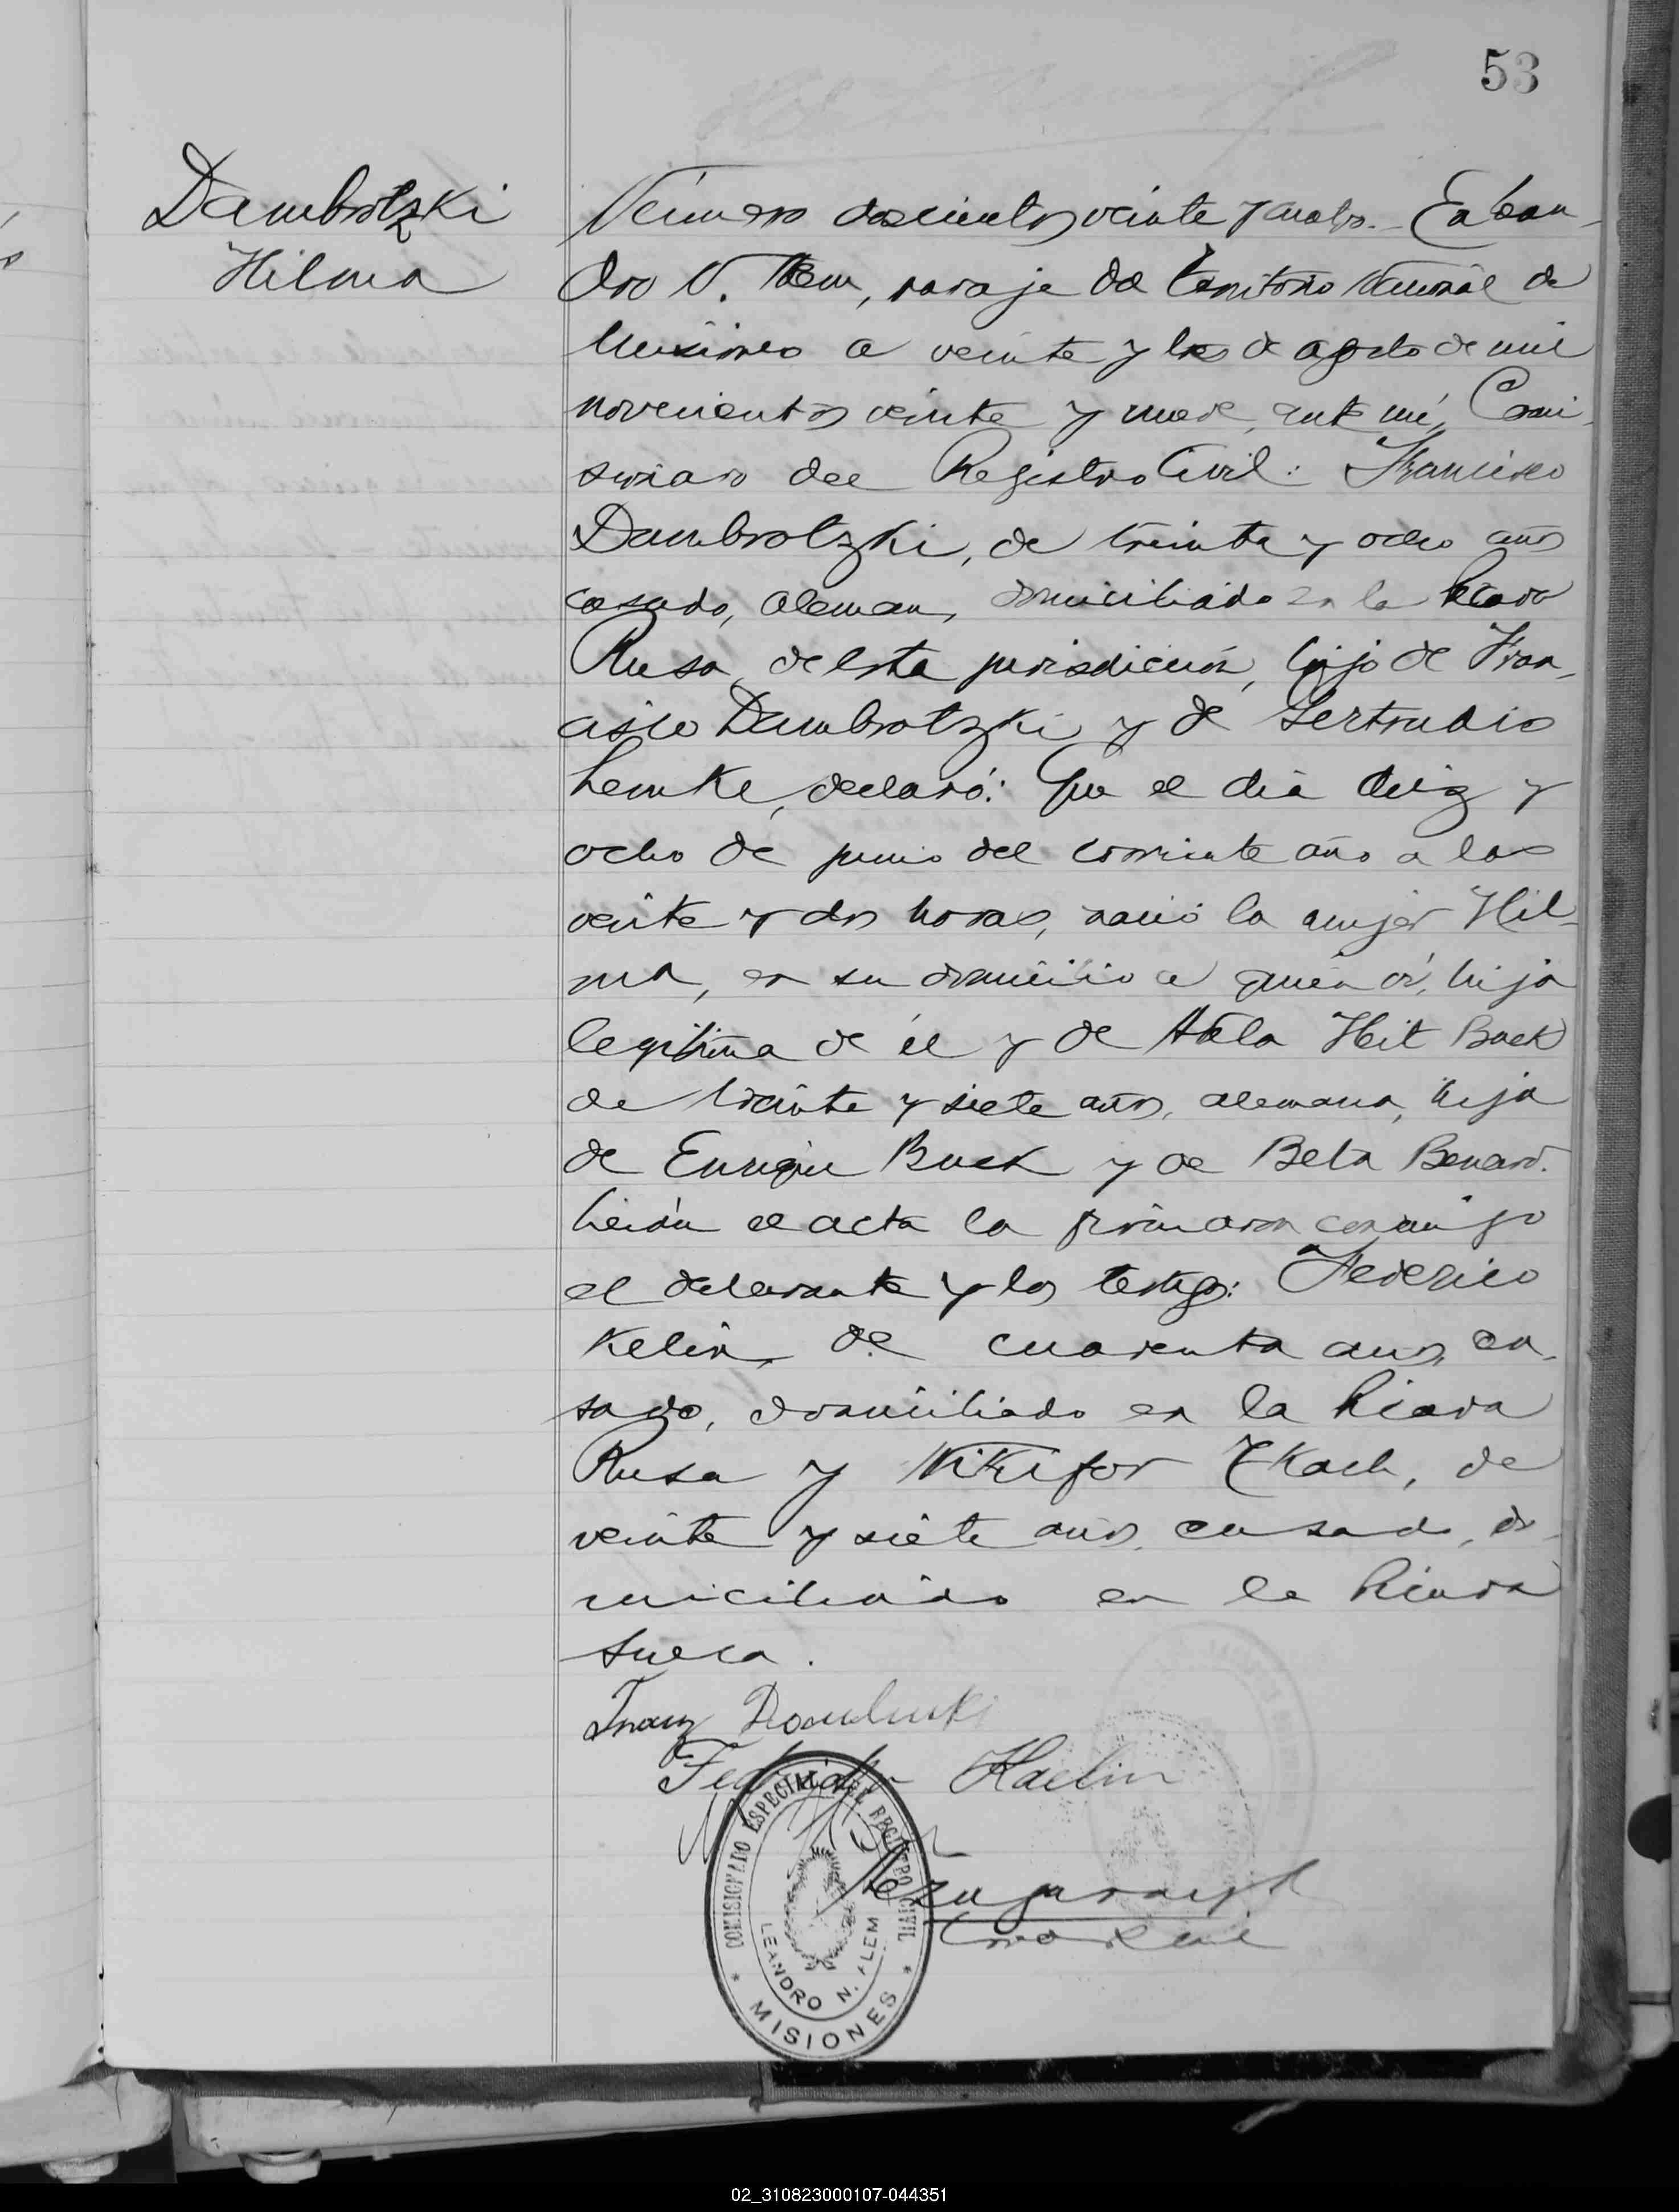 53
Dambrotzki
Hilma
Número doscientos veinte y cuatro. En Lean-
dro N. Alem, paraje del Territorio Nacional de
Misiones a veinte y tres de agosto de mil
novecientos veinte y nueve, ante mí, Comi-
sionado del Registro Civil: Francisco
Dambrotzki, de treinta y ocho años
casado, aleman, domiciliado en la Picada
Rusa, de esta jurisdicción, hijo de Fran-
cisco Dambrotzki y de Gertrudis
Lemke, declaró: Que el día diez y
ocho de junio del corriente año a las
veinte y dos horas, nació la mujer Hil-
ma, en su domicilio a quién ví, hija
legítima de él y de Adela Heit Buck
de treinta y siete años, alemana, hija
de Enrique Buck y de Beta Benard.
Leída el acta la firmaron conmigo
el declarante y los testigos: Federico
Kelin, de cuarenta años, ca-
sado, domiciliado en la Picada
Rusa y Nikifor Tkach, de
veinte y siete años, casado, do-
miciliado en la Picada
Sueca.
Franz
Kaelin
COMISIONADO ESPECIAL DEL REGISTRO CIVIL
LEANDRO N. ALEM
* MISIONES *
02_310823000107-044351